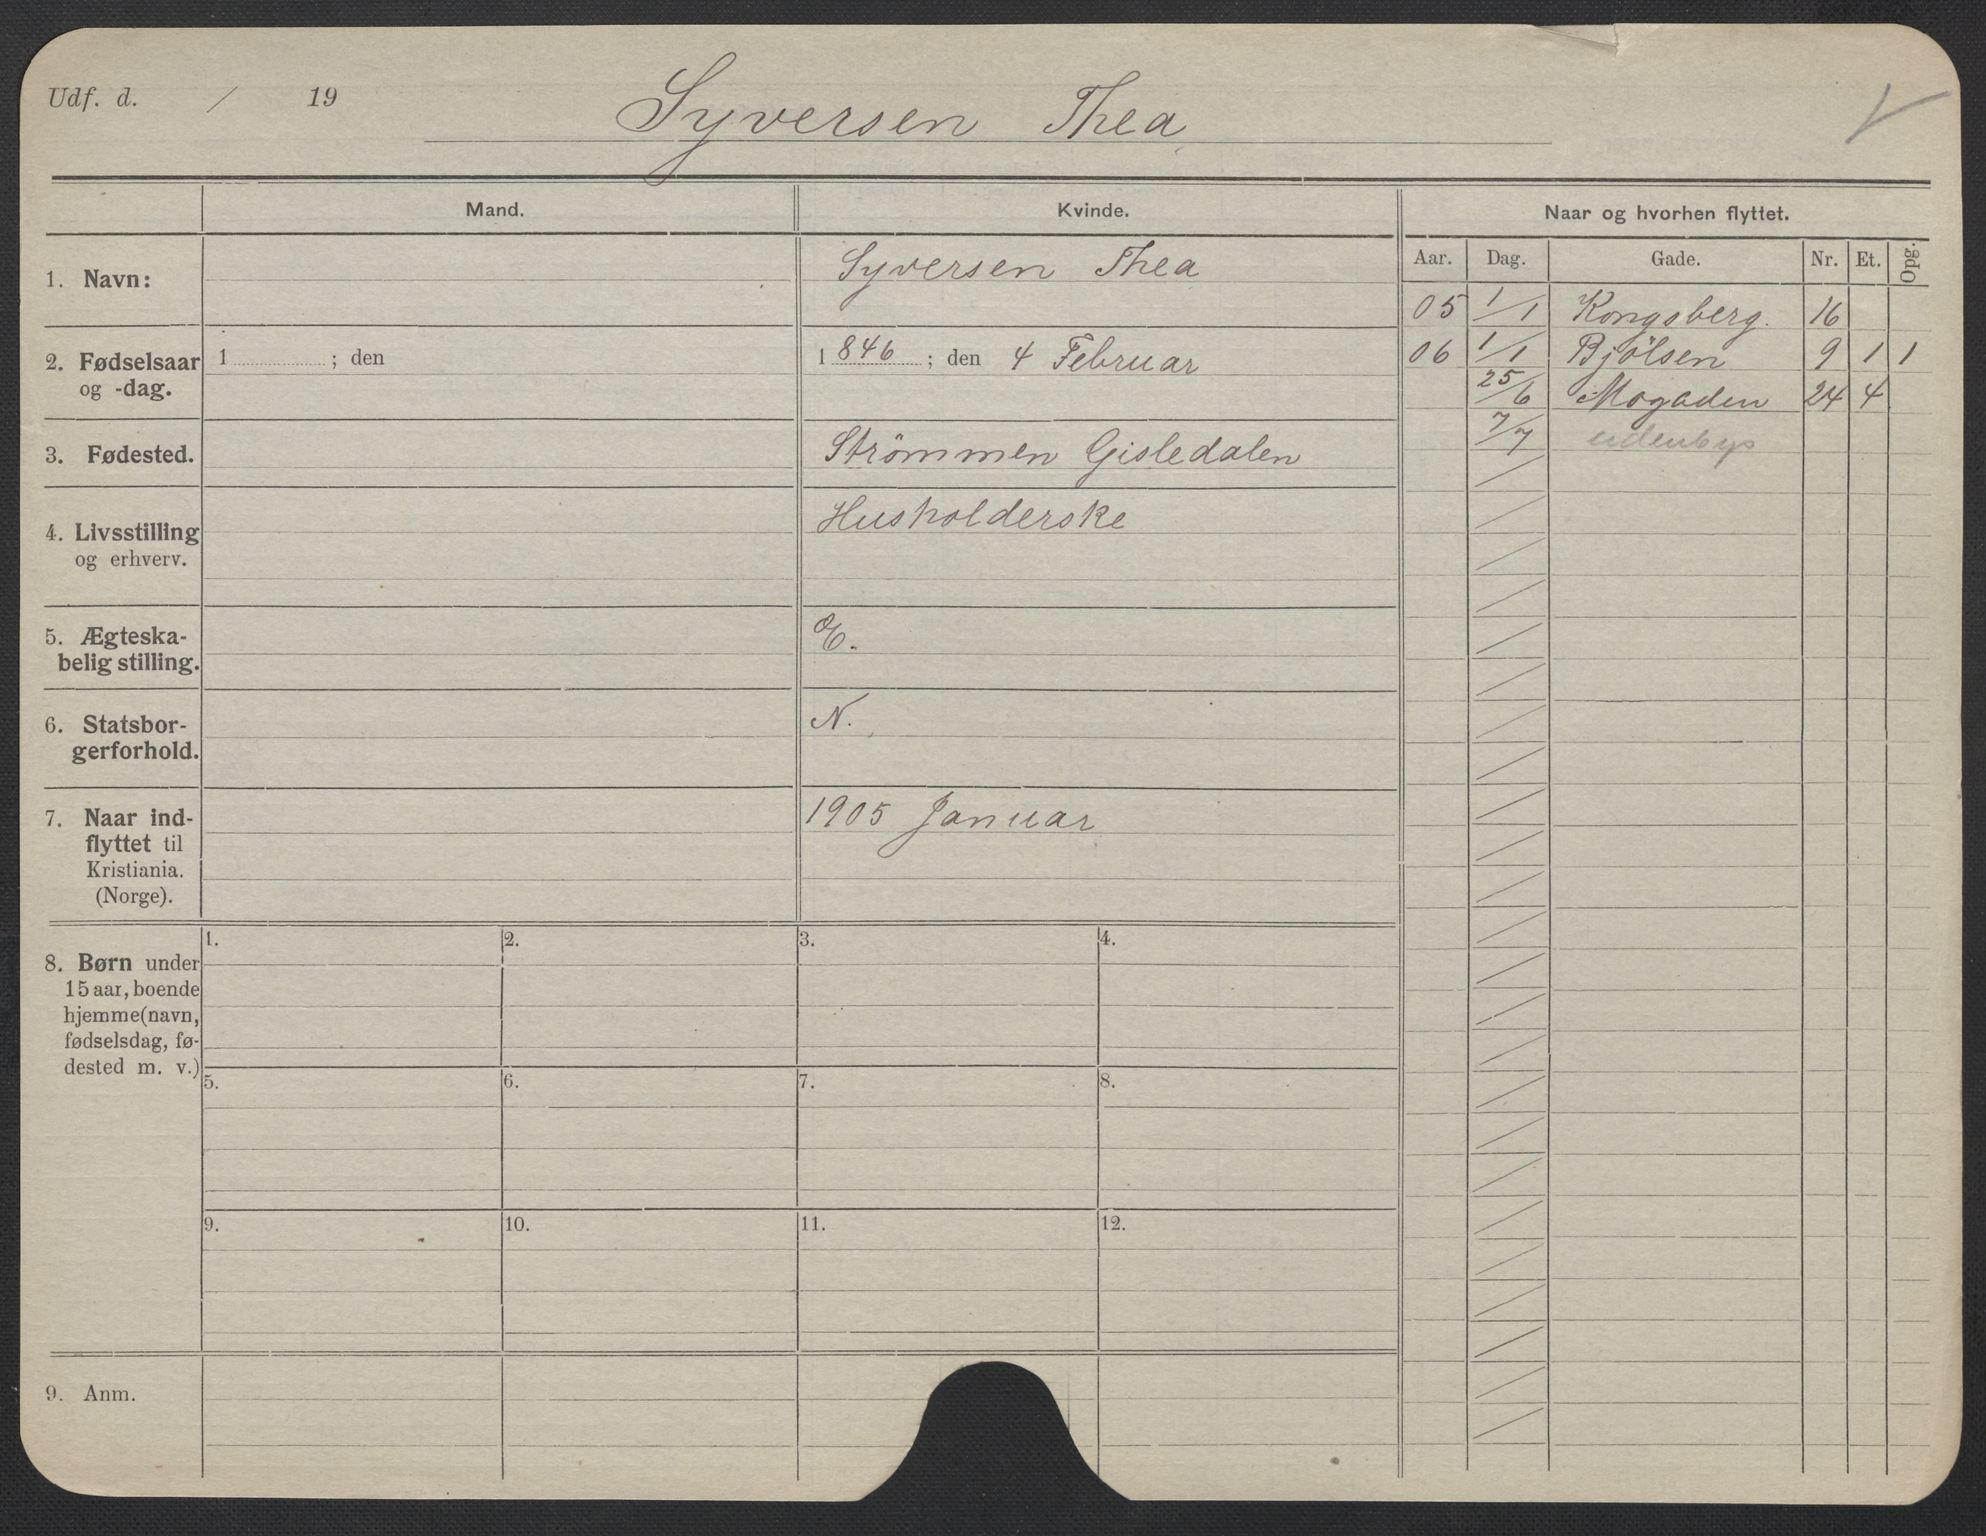 Udf. d. / 19
Syversen Thea
Mand.
Kvinde.
Naar og hvorhen flyttet.
Aar. Dag. Gade. Nr. Et. Opg.
1. Navn:
Syversen Thea
2. Fødselsaar
og -dag.
1 ; den
1 846 ; den 4 Februar
3. Fødested.
Strömmen Gisledalen
4. Livsstilling
og erhverv.
Husholderske
5. Ægteska-
belig stilling.
E.
6. Statsbor-
gerforhold.
N.
7. Naar ind-
flyttet til
Kristiania.
(Norge).
1905 Januar
05 1/1 Kongsberg. 16
06 1/1 Bjölsen 9 1 1
25/6 Mogaden 24 4
7/7 udenbys
8. Børn under
15 aar, boende
hjemme (navn,
fødselsdag, fø-
dested m. v.)
1. 2. 3. 4.
5. 6. 7. 8.
9. 10. 11. 12.
9. Anm.